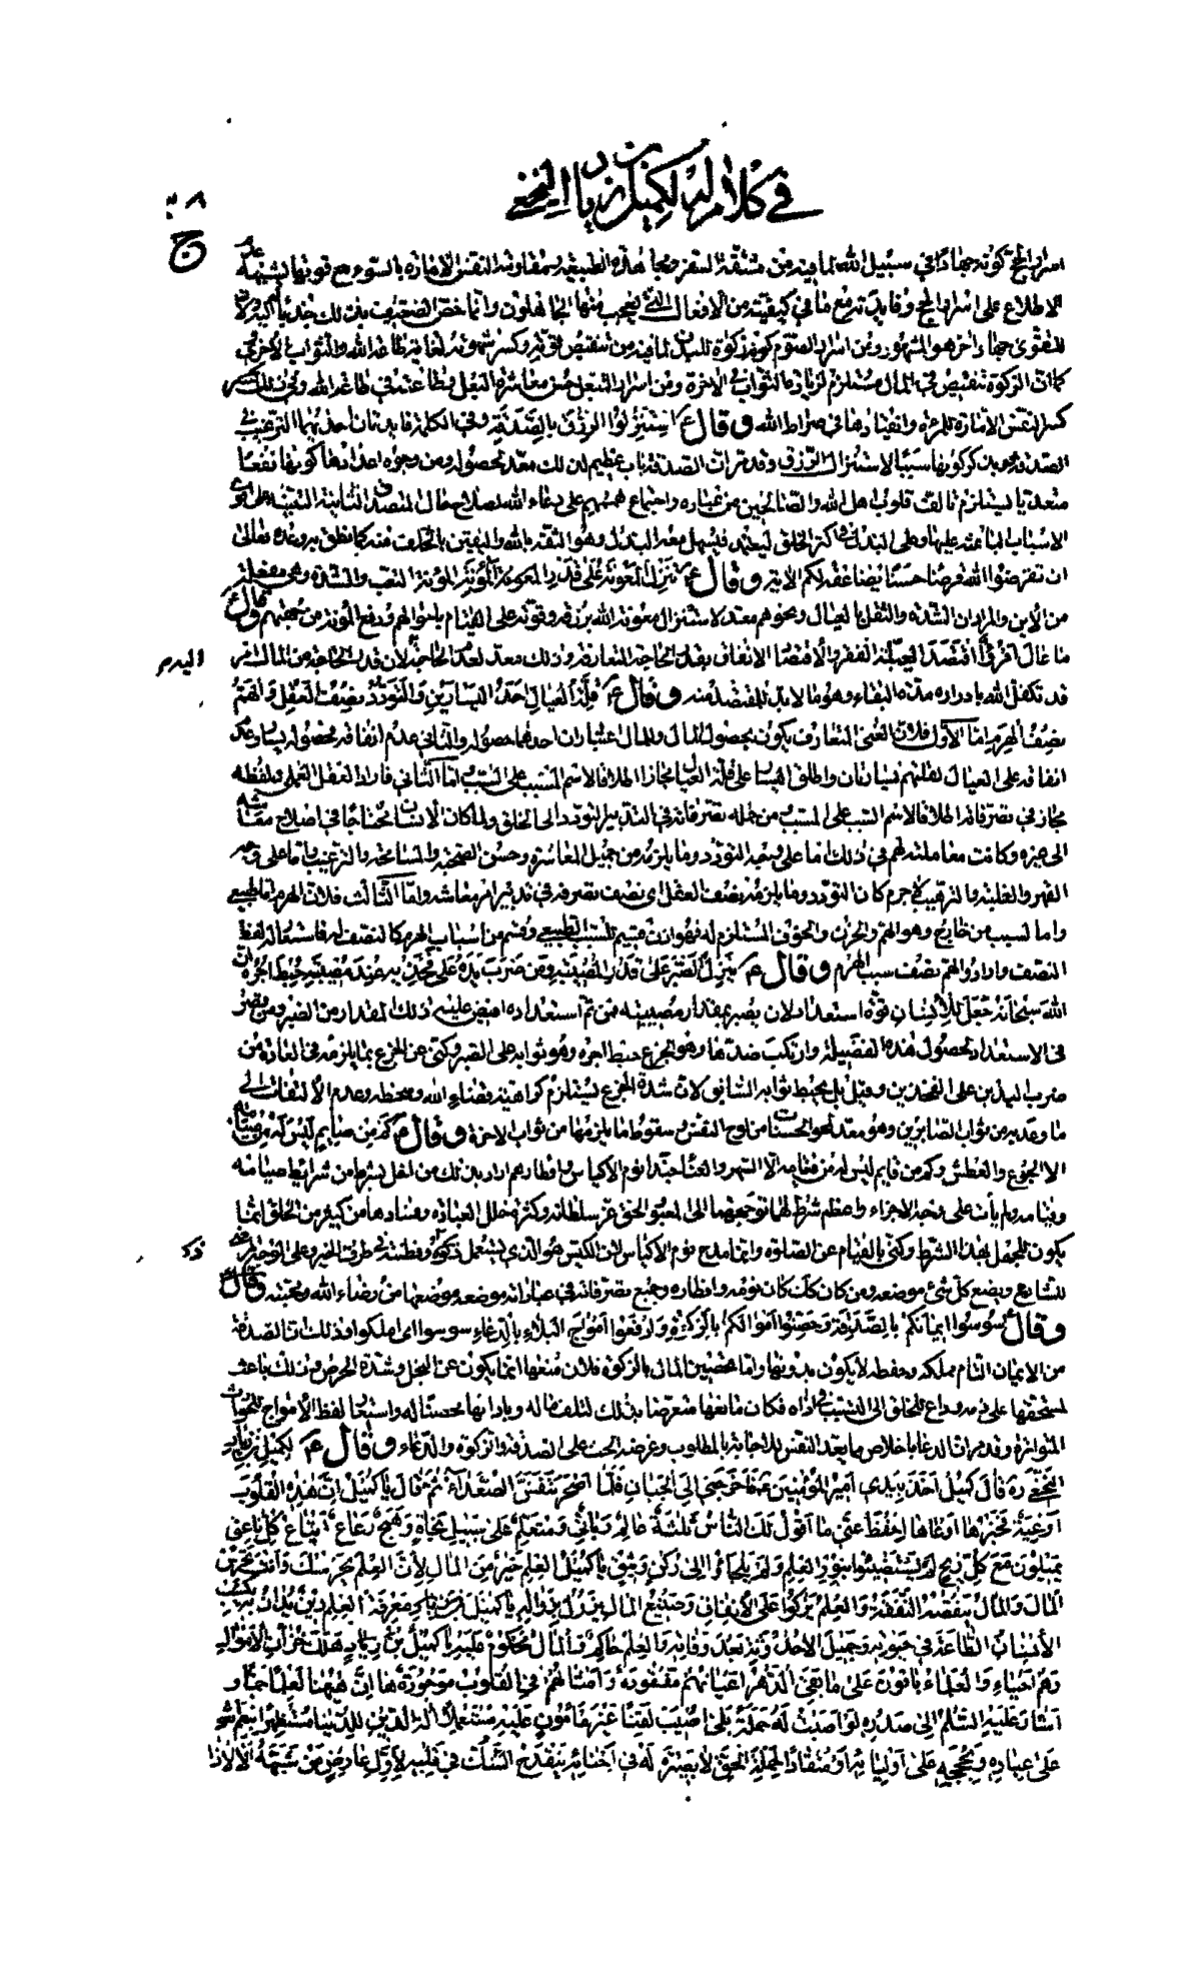 في كلام له لكميل بن زياد النخعي
اسرار الحج كونه جهادًا في سبيل الله لما فيه من مشقة السفر ومجاهدة الطبيعة ومقاومة النفس الامارة بالسوء مع قوتها
الاطلاع على اسرار الحج وفايدته مع ما في كيفيته من الافعال التي يتعجب منها الجاهلون وانما خص الضعيف بذلك
للقوى جهاد اخر هو المشهور ومن اسرار الصوم كونه زكوة للبدن لما فيه من تنقيص قوته وكسر شهوته لغاية طاعة الله والثواب الاخروى
كما ان الزكوة تنقيص في المال مستلزم لزيادة الثواب في الاخرة ومن اسرار التبعل حسن معاشرة البعل وطاعته في طاعة الله وفي ذلك
كسر النفس الامارة للمراة وانقيادها في صراط الله وقال ع استنزلوا الرزق بالصدقة وفي الكلمة فايدتان احدهما الترغيب في
الصدقة بذكر كونها سببا لاستنزال الرزق وقد مر ان الصدقة باب عظيم لذلك معد لحصوله ومن وجوه اعدادها كونها نفعا
متعديا يستلزم تالف قلوب اهل الله والصالحين من عباده واجتماع هممهم على دعاء الله لصلاح حال المتصدق الثانية التنبيه على
من ايقن بالخلف
ان تقرضوا الله قرضا حسنا يضاعفه لكم الاية وقال ع تنزل المعونة على قدر المؤنة المؤنة التعب والشدة وهي مفعلة
من الاين والمراد ان الشدة والثقل بالعيال ونحوهم معد لاستنزال معونة الله برزقه وقوته على القيام باحوالهم ودفع المؤنة من جهتهم وقال ع
ما عال امرؤ اقتصد العيلة الفقر والاقتصاد الانفاق بقدر الحاجة المتعارفة وذلك معد لعدم الحاجة لان قدر الحاجة من المال
قد تكفل الله بادراره مدة البقاء وهو ما لا بد للمقتصد منه وقال ع قلة العيال احد اليسارين والتودد نصف العقل والهم
نصف الهرم اما الاول فلان الغنى المتعارف يكون بحصول المال وللمال اعتباران احدهما حصوله والثاني عدم انفاقه فحصوله يسار وعدم
انفاقه على العيال لقلتهم يسار ثان واطلق اليسار على قلة العيال مجازا اطلاقا لاسم المسبب على السبب اما الثاني فاراد العقل العملي ولفظه
مجاز في تصرفاته اطلاقا لاسم السبب على المسبب ومن جملة تصرفاته في التدبير التودد الى الخلق ولما كان الانسان محتاجا في اصلاح معاشه
الى غيره وكانت معاملته لهم في ذلك اما على وجه التودد وما يلزمه من جميل المعاشرة وحسن الصحبة والمسامحة والترغيب واما على وجه
القهر والغلبة والترهيب لا جرم كان التودد وما يلزمه نصف العقل اى نصف تصرفه في تدبير امر معاشه واما الثالث فلان الهرم اما طبيعي
واما لسبب من خارج وهو الهم والحزن والخوف المستلزم له فهو اذن قسيم للسبب الطبيعي وقسم من اسباب الهرم كالنصف له فاستعار له لفظ
النصف واراد والهم نصف سبب الهرم وقال ع ينزل الصبر على قدر المصيبة ومن ضرب يده على فخذيه عند مصيبته حبط اجره ان
الله سبحانه جعل للانسان قوة استعداد لان يصبر بمقدار مصيبته فمن تم استعداده افيض عليه ذلك المقدار من الصبر ومن قصر
في الاستعداد لحصول هذه الفضيلة وارتكب ضدها وهو الجزع حبط اجره وهو ثوابه على الصبر وكنى عن الجزع بما يلزمه في العادة من
ضرب اليدين على الفخذين وقيل بل يحبط ثوابه السابق لان شدة الجزع يستلزم كراهية قضاء الله وسخطه وعدم الالتفات الى
ما وعد به من ثواب الصابرين وهو معد لمحو الحسنات من لوح النفس وسقوط ما يلزمها من ثواب الاخرة وقال ع كم من صايم ليس له من صيامه
الا الجوع والعطش وكم من قايم ليس له من قيامه الا السهر والعنا حبذا نوم الاكياس وافطارهم اراد بذلك من اخل بشرط من شرايط صيامه
وقيامه ولم يات على وجه الاجزاء واعظم شرط لهما توجههما الى المعبود الحق عز سلطانه وكثرة خلل العبادة وفسادها من كثير من الخلق انما
يكون للجهل بهذا الشرط وكنى بالقيام عن الصلوة وانما مدح نوم الاكياس لان الكيس هو الذى يستعمل ذكاءه وفطنته في طرق الخير وعلى الوجه
للشارع ويضع كل شئ موضعه ومن كان كذلك كان نومه وافطاره وجميع تصرفاته في عباداته موضعه موضعها من رضاء الله ومحبته وقال ع
وقال سوسوا ايمانكم بالصدقة وحصنوا اموالكم بالزكوة وادفعوا امواج البلاء بالدعاء سوسوا اى املكوا وذلك ان الصدقة
من الايمان التام فملكه وحفظه لا يكون بدونها واما تحصين المال بالزكوة فلان منعها انما يكون عن البخل وشدة الحرص وذلك باعث
لمستحقها على ذمه وداع للخلق الى التسبب في اذاه فكان مانعها متعرضا بذلك لتلف ماله وبادائها محصنا له واستعار لفظ الامواج للحوادث
المتواترة وقد مر ان الدعا باخلاص مما يعد النفس للاجابة بالمطلوب وغرضه الحث على الصدقة والزكوة والدعاء وقال ع لكميل بن زياد
النخعي ره قال كميل اخذ بيدى امير المؤمنين ع فاخرجني الى الجبان فلما اصحر تنفس الصعداء ثم قال يا كميل ان هذه القلوب
اوعية فخيرها اوعاها احفظ عني ما اقول لك الناس ثلثة عالم رباني ومتعلم على سبيل نجاة وهمج رعاع اتباع كل ناعق
يميلون مع كل ريح لم يستضيئوا بنور العلم ولم يلجاوا الى ركن وثيق يا كميل العلم خير من المال لان العلم يحرسك وانت تحرس
المال والمال تنقصه النفقة والعلم يزكوا على الانفاق وصنيع المال يزول بزواله يا كميل بن زياد معرفة العلم دين يدان به يكسب
الانسان الطاعة في حيوته وجميل الاحدوثة بعد وفاته والعلم حاكم والمال محكوم عليه يا كميل بن زياد هلك خزان الاموال
وهم احياء والعلماء باقون على ما بقي الدهر اعيانهم مفقودة وامثالهم في القلوب موجودة ها ان ههنا لعلما جما و
اشار عليه السلم الى صدره لو اصبت له حملة بلى اصيب لقنا غير مامون عليه مستعملا الة الدين للدنيا مستظهرا بنعم الله
على عباده وبحججه على اوليائه او منقادا لحملة الحق لا بصيرة له في احنائه ينقدح الشك في قلبه لاول عارض من شبهة الا لا ذا